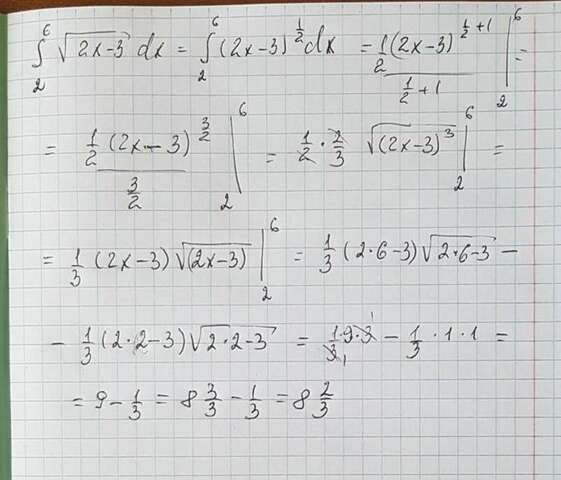 ∫₂⁶ √(2x-3) dx = ∫₂⁶ (2x-3)^(1/2) dx = (1/2 (2x-3)^(1/2+1))/(1/2+1) |₂⁶ =
= (1/2 (2x-3)^(3/2))/(3/2) |₂⁶ = 1/2 · 2/3 √((2x-3)³) |₂⁶ =
= 1/3 (2x-3) √(2x-3) |₂⁶ = 1/3 (2·6-3) √(2·6-3) -
- 1/3 (2·2-3) √(2·2-3) = (1·9·3)/3 - 1/3 · 1 · 1 =
= 9 - 1/3 = 8 3/3 - 1/3 = 8 2/3